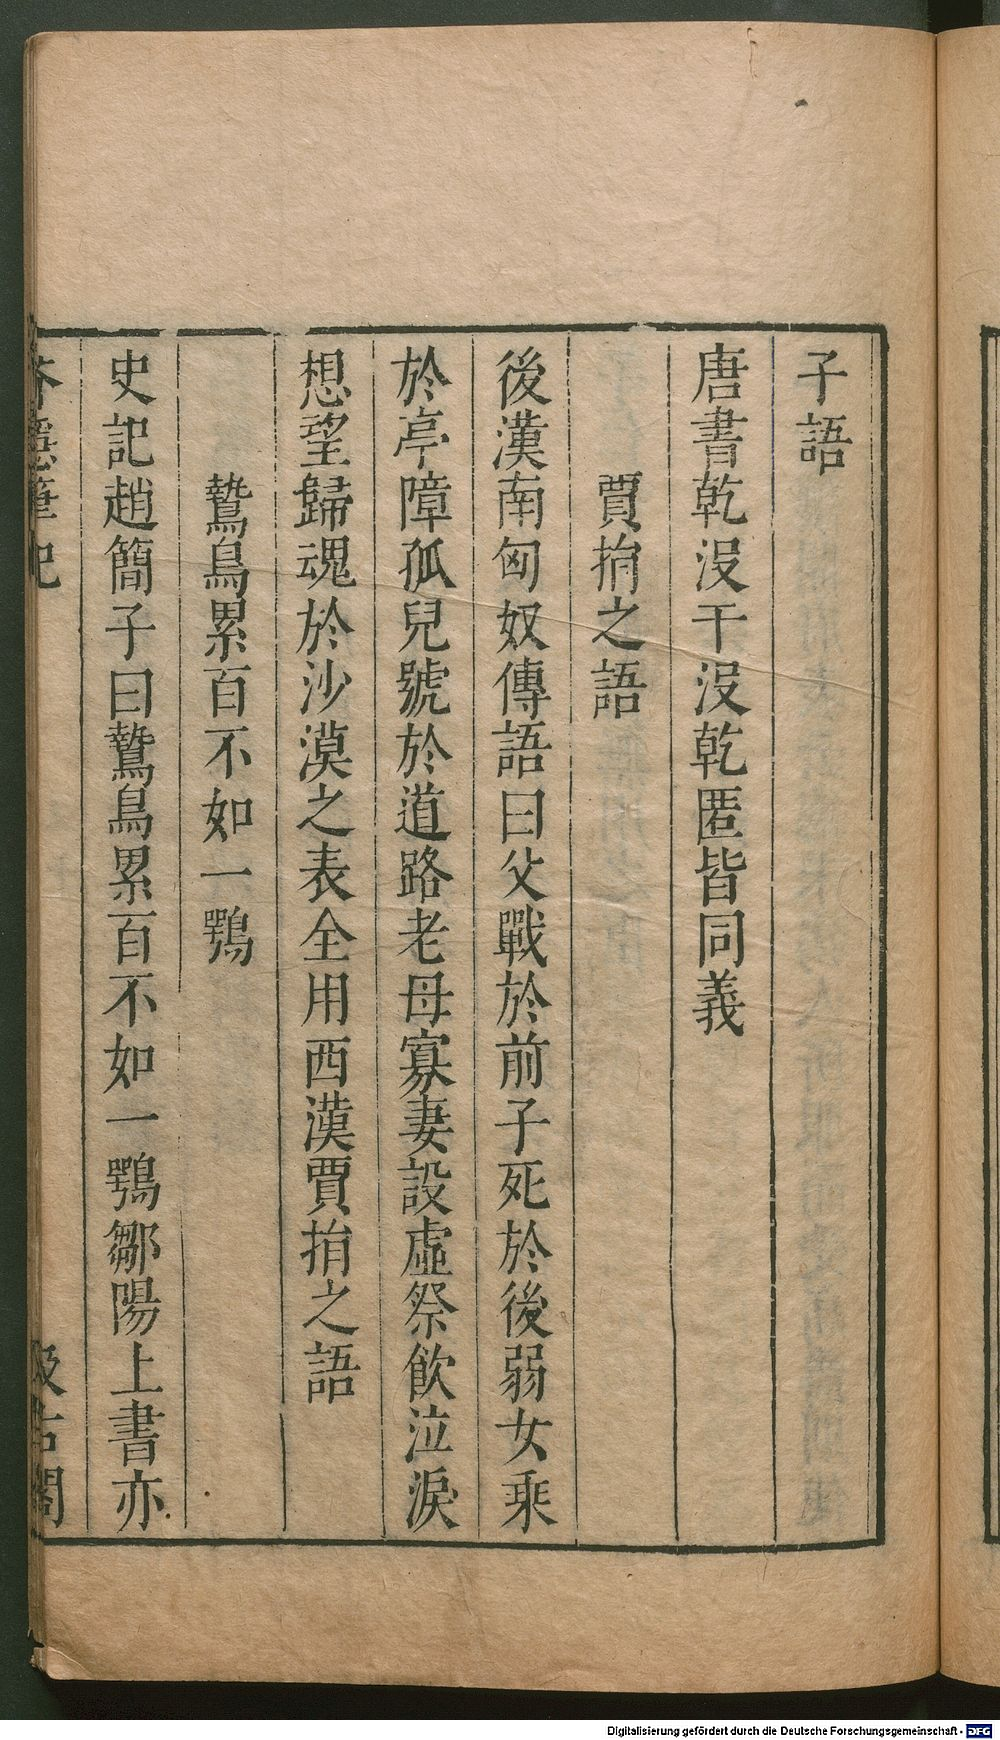 子語
唐書乾没干没乾匿皆同義
賈捐之語
後漢南匈奴傳語曰父戰於前子死於後弱女乘
於亭障孤兒號於道路老母寡妻設虛祭飲泣淚
想望歸魂於沙漠之表全用西漢賈捐之語
鷙鳥累百不如一鶚
史記趙簡子曰鷙鳥累百不如一鶚鄒陽上書亦
芥隱筆記
汲古閣
Digitalisierung gefördert durch die Deutsche Forschungsgemeinschaft - DFG